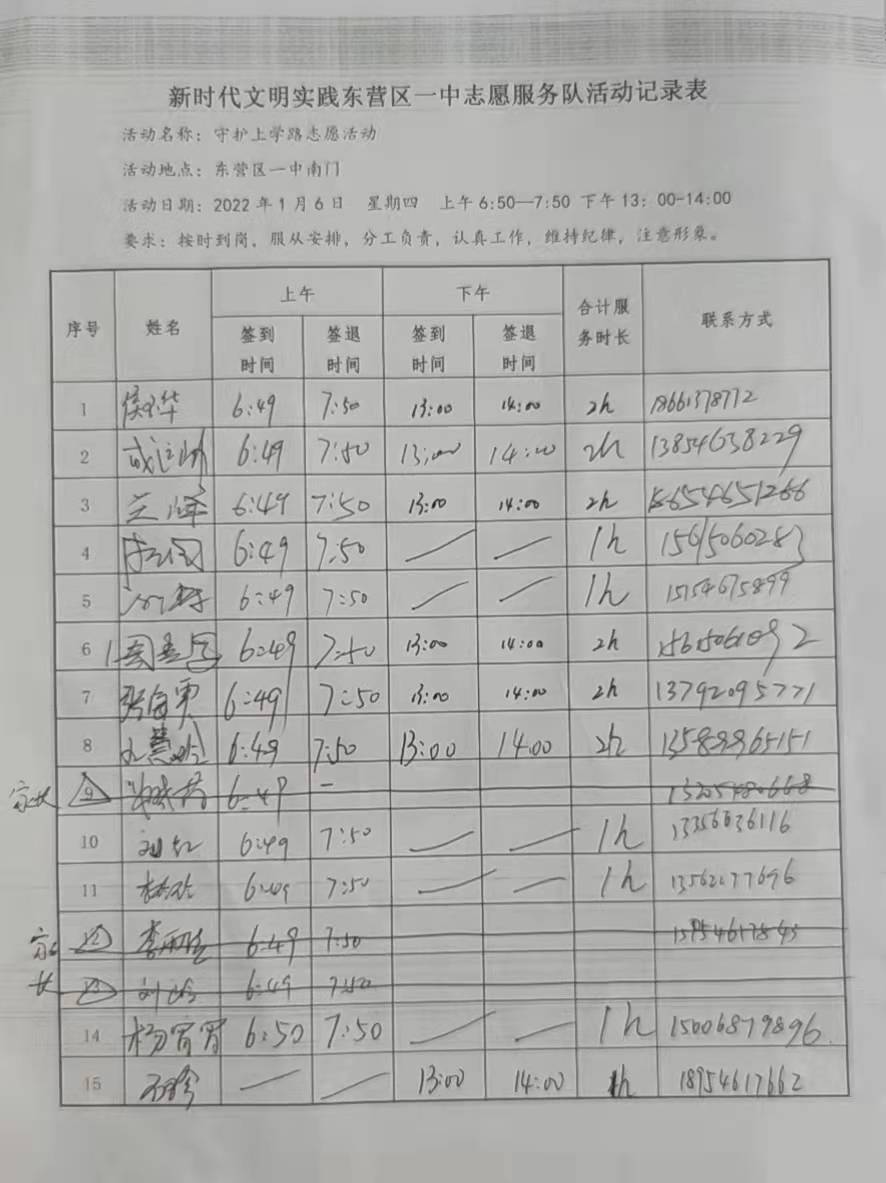 新时代文明实践东营区一中志愿服务队活动记录表
活动名称：守护上学路志愿活动
活动地点：东营区一中南门
活动日期：2022年1月6日 星期四 上午6:50—7:50 下午13：00-14:00
要求：按时到岗，服从安排，分工负责，认真工作，维持纪律，注意形象。
序号 姓名 上午 下午 合计服务时长 联系方式
签到时间 签退时间 签到时间 签退时间
1 6:49 7:50 13:00 14:00 2h 18661378772
2 6:49 7:50 13:00 14:00 2h 13854638229
3 兰峰 6:49 7:50 13:00 14:00 2h
4 6:49 7:50 — — 1h 15615060283
5 6:49 7:50 — — 1h 15154675899
6 6:49 7:50 13:00 14:00 2h
7 张海军 6:49 7:50 13:00 14:00 2h 13792095771
8 6:49 7:50 13:00 14:00 2h 13589965151
家长 9 6:49 —
10 刘红 6:49 7:50 — — 1h 13356636116
11 6:49 7:50 — — 1h 13562177696
家长 12 6:49 7:50
13 刘 6:49 7:50
14 杨宵宵 6:50 7:50 — — 1h 15006879896
15 — — 13:00 14:00 1h 18954617662